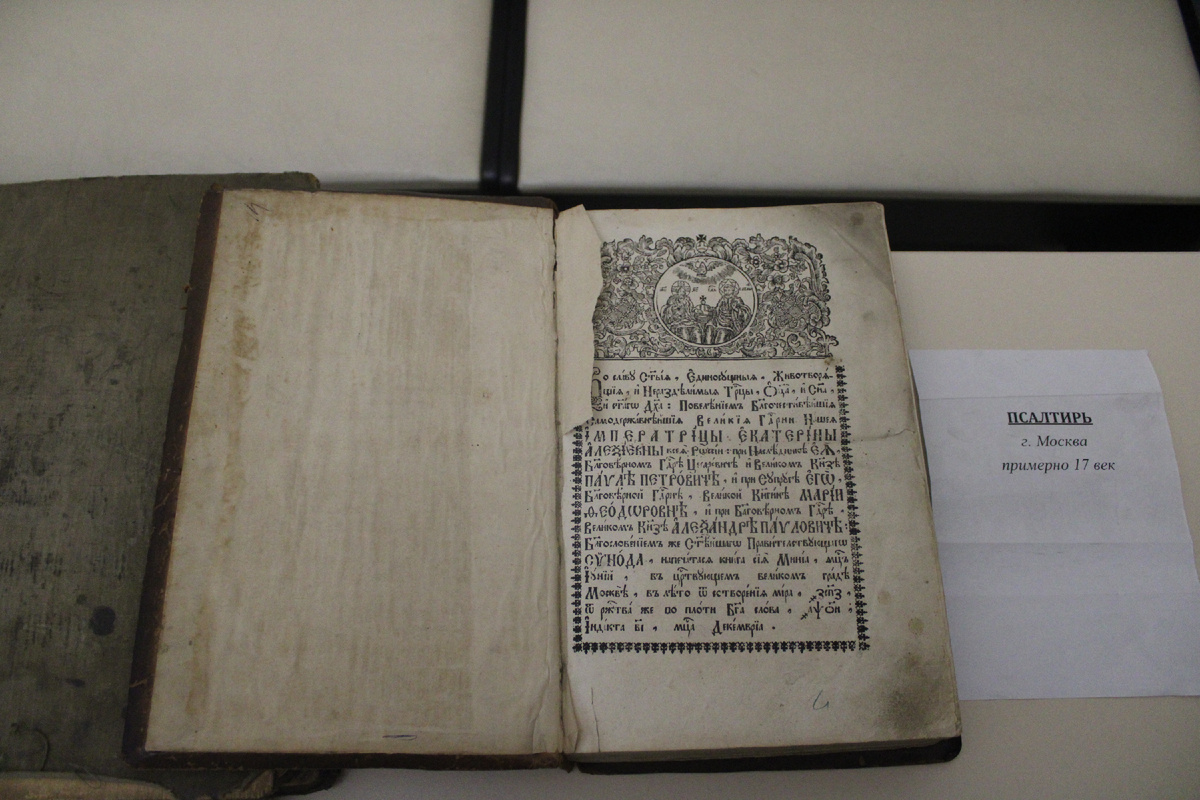 Во славу Ст҃ыѧ, Єдиносꙋщныѧ, Животворѧ-
щїѧ, и҆ Нераздѣлимыѧ Трⷪ҇цы, Ѻ҆ц҃а, и҆ Сн҃а,
и҆ ст҃агѡ Дх҃а: Повелѣнїемъ Бл҃гочестивѣйшїѧ
самодержавнѣйшїѧ Великїѧ Гдⷭ҇рни Нашеѧ
ИМПЕРАТРИЦЫ ЄКАТЕРИНЫ
АЛЕѮІЕВНЫ всеѧ Рѡссїи: при Наслѣдникѣ ЄѦ,
Бл҃говѣрномъ Гдⷭ҇рѣ Цесаревичѣ и҆ Великомъ Кн҃зѣ
ПАѴЛѢ ПЕТРОВИЧѢ, и҆ при сꙋпрꙋгѣ ЄГѠ,
Бл҃говѣрной Гдⷭ҇рнѣ, Великой Кн҃гинѣ МАРІИ
ѲЕОДѠРОВНѢ, и҆ при Бл҃говѣрномъ Гдⷭ҇рѣ
Великомъ Кн҃зѣ АЛЕѮАНДРѢ ПАѴЛОВИЧѢ:
Бл҃гословенїемъ же Ст҃ѣйшагѡ Правителствꙋющагѡ
СѴНОДА, напечатасѧ книга сїѧ Минїа, мцⷭ҇ъ
Іꙋнїй, въ црⷭ҇твꙋющемъ великомъ градѣ
Москвѣ, въ лѣто ѿ сотворенїѧ мїра,
ѿ ржⷭ҇тва же по плоти Бг҃а слова,
Індїкта в҃і, мцⷭ҇а Декемврїа.
ПСАЛТИРЬ
г. Москва
примерно 17 век